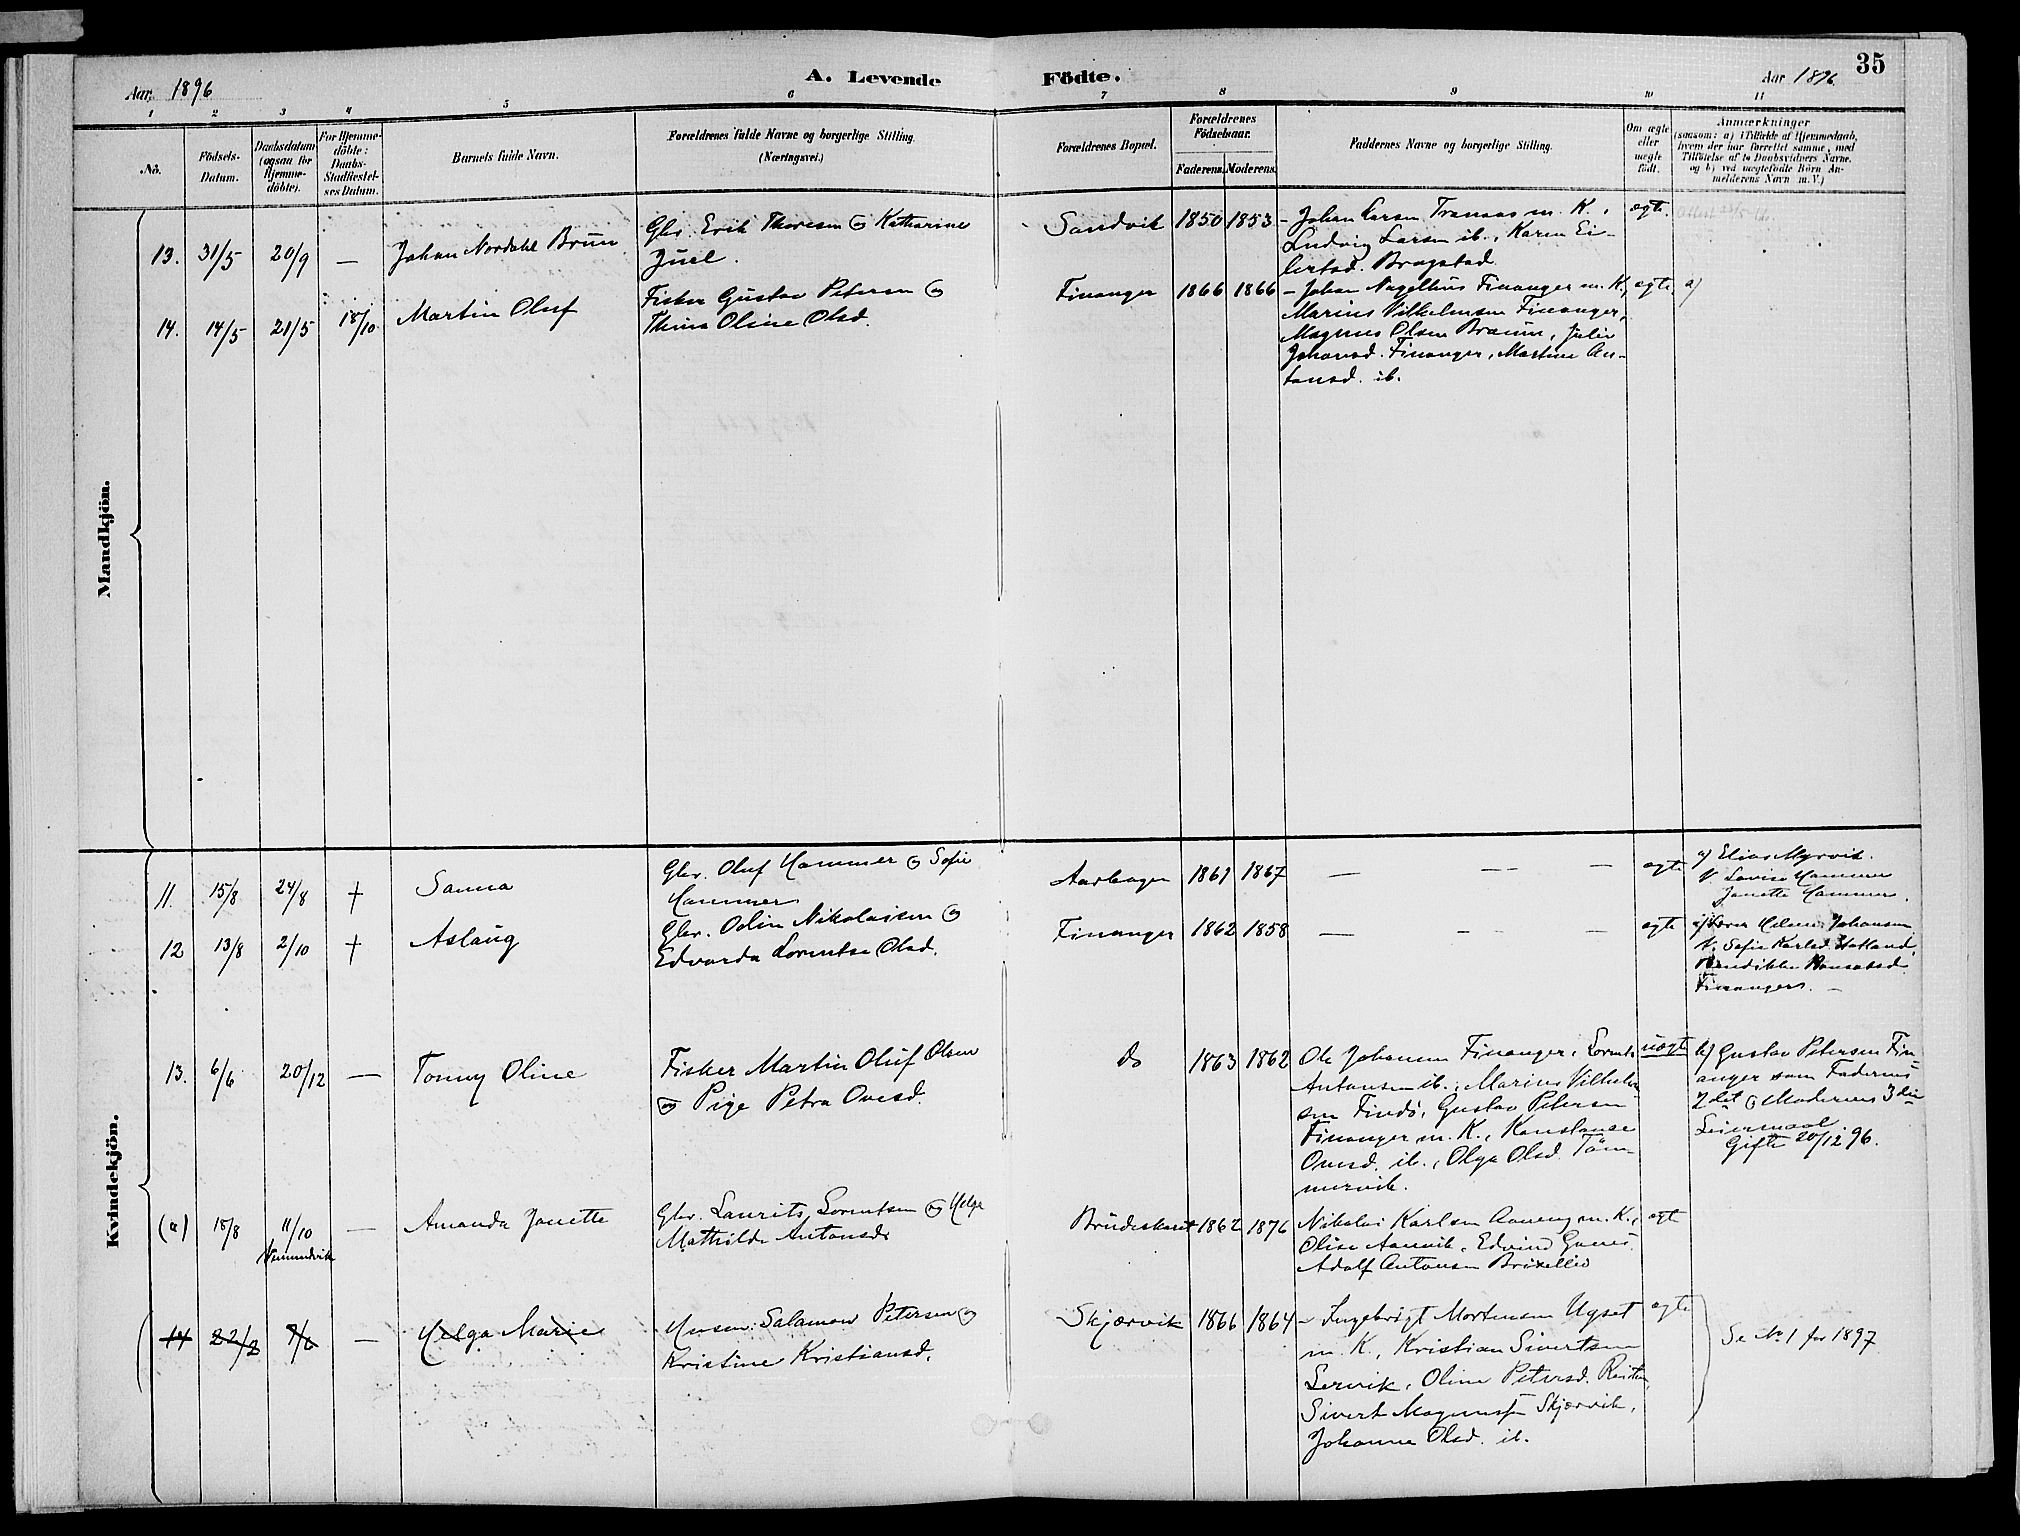 35
Aar 1896
A. Levende
Födte.
Aar 1896.
1 2 3 4 5 6 7 8 9 10 11
No.
Födsels-
Datum.
Daabsdatum
(ogsaa for
Hjemme-
döbte).
For Hjemme-
döbte:
Daabs-
Stadfæstel-
ses Datum.
Barnets fulde Navn.
Forældrenes fulde Navne og borgerlige Stilling.
(Næringsvei.)
Forældrenes Bopæl.
Forældrenes
Födselsaar.
Faderens. Moderens.
Faddernes Navne og borgerlige Stilling.
Om ægte
eller
uægte
födt.
Anmærkninger
(saasom: a) i Tilfælde af Hjemmedaab,
hvem der har forrettet samme, med
Tilföielse af to Daabsvidners Navne,
og b) ved uægtefödte Börn An-
melderens Navn m. V.)
Mandkjön.
13. 31/5 20/9 — Johan Nordahl Brun
Gbr. Erik Thoresen og Katharine
Juel.
Sandvik 1850 1853
- Johan Larsen Tranaas m. K.,
Ludvig Larsen ib., Karen Ei-
lertsd. Bragstad
ægte.
14. 14/5 21/5 18/10 Martin Oluf
Fisker Gustav Petersen og
Thina Oline Olsd.
Finanger 1866 1866
- Johan Nagelhus Finanger m. K.,
Marius Vilhelmsen Finanger,
Magnus Olsen Braum, Julie
Johansd. Finanger, Martine An-
tonsd. ib.
ægte, a)
Kvindekjön.
11. 15/8 24/8 † Sanna
Gbr. Oluf Hammer og Sofie
Hammer
Aarhagen 1861 1867 — — —
ægte
a) Elias Myrvik.
V. Lovise Hammer
Janette Hammer.
12 13/8 2/10 † Aslaug
Gbr. Odin Nikolaisen og
Edvarda Lorentse Olsd.
Finanger 1862 1858 — - —
ægte
Johansen
V. Sofie Karlsd.
Finanger. —
13. 6/6 20/12 — Tonny Oline
Fisker Martin Oluf Olsen
og Pige Petra Ovesd.
do 1863 1862
Ole Johansen Finanger, Lorents
Antonsen ib., Marius Vilhelm-
sen Findö, Gustav Petersen
Finanger m. K., Konstanse
Ovesd. ib., Olga Olsd. Töm-
mervik.
uægte
b) Gustav Petersen Fin-
anger som Faderens
2det og Moderens 3die
Leiermaal
Gifte 20/12 96.
(a) 18/8 11/10 —
Vemundvik
Amanda Janette
Gbr. Laurits Lorentsen og Helga
Mathilde Antonsd.
Brudeskaret 1862 1876
Nikolai Karlsen Aaneng m. K.,
Olise Aanvik, Edvind
Adolf Antonsen
ægt
14 22/2 7/6 — Helga Marie
Husm. Salamon Petersen og
Kristine Kristiansd.
Skjærvik 1866 1864
- Ingebrigt Mortensen Ugset
m. K., Kristian Sivertsen
Servik, Oline Petersd.
Sivert Magnussen Skjærvik,
Johanna Olsd. ib.
ægte
Se No 1 for 1897